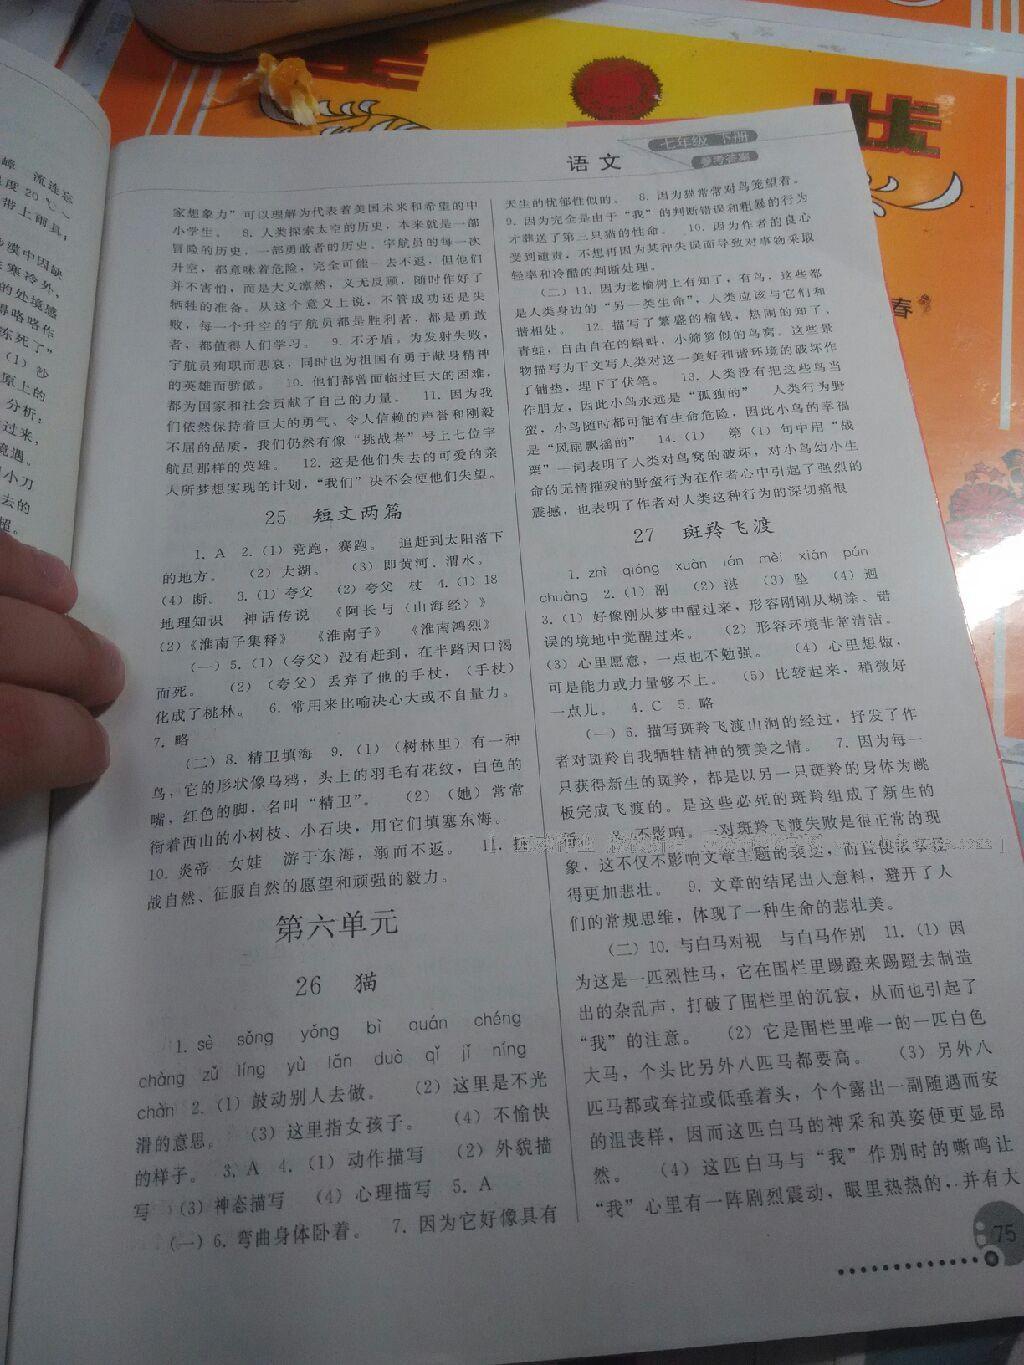 语文
七年级 下册
参考答案
家想象力”可以理解为代表着美国未来和希望的中
小学生。 8. 人类探索太空的历史，本来就是一部
冒险的历史，一部勇敢者的历史。宇航员的每一次
升空，都意味着危险，完全可能一去不返，但他们
并不害怕，而是大义凛然，义无反顾，随时作好了
牺牲的准备。从这个意义上说，不管成功还是失
败，每一个升空的宇航员都是胜利者，都是勇敢
者，都值得人们学习。 9. 不矛盾。为发射失败，
宇航员殉职而悲哀，同时也为祖国有勇于献身精神
的英雄而骄傲。 10. 他们都曾面临过巨大的困难，
都为国家和社会贡献了自己的力量。 11. 因为我
们依然保持着巨大的勇气、令人信赖的声誉和刚毅
不屈的品质，我们仍然有像“挑战者”号上七位宇
航员那样的英雄。 12. 这是他们失去的可爱的亲
人所梦想实现的计划，“我们”决不会使他们失望。
25 短文两篇
1. A 2. (1) 竞跑，赛跑。 追赶到太阳落下
的地方。 (2) 大湖。 (3) 即黄河、渭水。
(4) 断。 3. (1) 夸父 (2) 夸父 杖 4. (1) 18
地理知识 神话传说 《阿长与〈山海经〉》
(2)《淮南子集释》 《淮南子》 《淮南鸿烈》
(一) 5. (1) (夸父) 没有赶到，在半路因口渴
而死。 (2) (夸父) 丢弃了他的手杖，(手杖)
化成了桃林。 6. 常用来比喻决心大或不自量力。
7. 略
(二) 8. 精卫填海 9. (1) (树林里) 有一种
鸟，它的形状像乌鸦，头上的羽毛有花纹，白色的
嘴，红色的脚，名叫“精卫”。 (2) (她) 常常
衔着西山的小树枝、小石块，用它们填塞东海。
10. 炎帝 女娃 游于东海，溺而不返。 11.
战自然、征服自然的愿望和顽强的毅力。
第六单元
26 猫
1. sè sǒng yǒng bì quán chéng
chàng zǔ líng yù lǎn duò qǐ jǐ níng
chàn 2. (1) 鼓动别人去做。 (2) 这里是不光
滑的意思。 (3) 这里指女孩子。 (4) 不愉快
的样子。 3. A 4. (1) 动作描写 (2) 外貌描
写 (3) 神态描写 (4) 心理描写 5. A
(一) 6. 弯曲身体卧着。 7. 因为它好像具有
天生的忧郁性似的。 8. 因为猫常常对鸟笼望着。
9. 因为完全是由于“我”的判断错误和粗暴的行为
才葬送了第三只猫的性命。 10. 因为作者的良心
受到谴责，不想再因为某种失误而导致对事物采取
轻率和冷酷的判断处理。
(二) 11. 因为老榆树上有知了，有鸟，这些都
是人类身边的“另一类生命”，人类应该与它们和
谐相处。 12. 描写了繁盛的榆钱，热闹的知了、
青蛙，自由自在的蝌蚪，小筛箩似的鸟窝。这些景
物描写为下文写人类对这一美好和谐环境的破坏作
了铺垫，埋下了伏笔。 13. 人类没有把这些鸟当
作朋友，因此小鸟永远是“孤独的” 人类行为野
蛮，小鸟随时都可能有生命危险，因此小鸟的幸福
是“风雨飘摇的” 14. (1) 第 (1) 句中用“战
栗”一词表明了人类对鸟窝的破坏，对小鸟幼小生
命的无情摧残的野蛮行为在作者心中引起了强烈的
震撼，也表明了作者对人类这种行为的深切痛恨
27 斑羚飞渡
1. zhì qióng xuàn rán mèi xián pún
chuàng 2. (1) 剐 (2) 湛 (3) 坠 (4) 迥
3. (1) 好像刚从梦中醒过来，形容刚刚从糊涂、错
误的境地中觉醒过来。 (2) 形容环境非常清洁。
(3) 心里愿意，一点也不勉强。 (4) 心里想做，
可是能力或力量够不上。 (5) 比较起来，稍微好
一点儿。 4. C 5. 略
(一) 6. 描写斑羚飞渡山涧的经过，抒发了作
者对斑羚自我牺牲精神的赞美之情。 7. 因为每一
只获得新生的斑羚，都是以另一只斑羚的身体为跳
板完成飞渡的。是这些必死的斑羚组成了新生的
不影响。一对斑羚飞渡失败是很正常的现
象，这不仅不影响文章主题的表达，而且使故事显
得更加悲壮。 9. 文章的结尾出人意料，避开了人
们的常规思维，体现了一种生命的悲壮美。
(二) 10. 与白马对视 与白马作别 11. (1) 因
为这是一匹烈性马，它在围栏里踢蹬来踢蹬去制造
出的杂乱声，打破了围栏里的沉寂，从而也引起了
“我”的注意。 (2) 它是围栏里唯一的一匹白色
大马，个头比另外八匹马都要高。 (3) 另外八
匹马都或耷拉或低垂着头，个个露出一副随遇而安
的沮丧样，因而这匹白马的神采和英姿便更显昂
然。 (4) 这匹白马与“我”作别时的嘶鸣让
“我”心里有一阵剧烈震动，眼里热热的，并有大
75